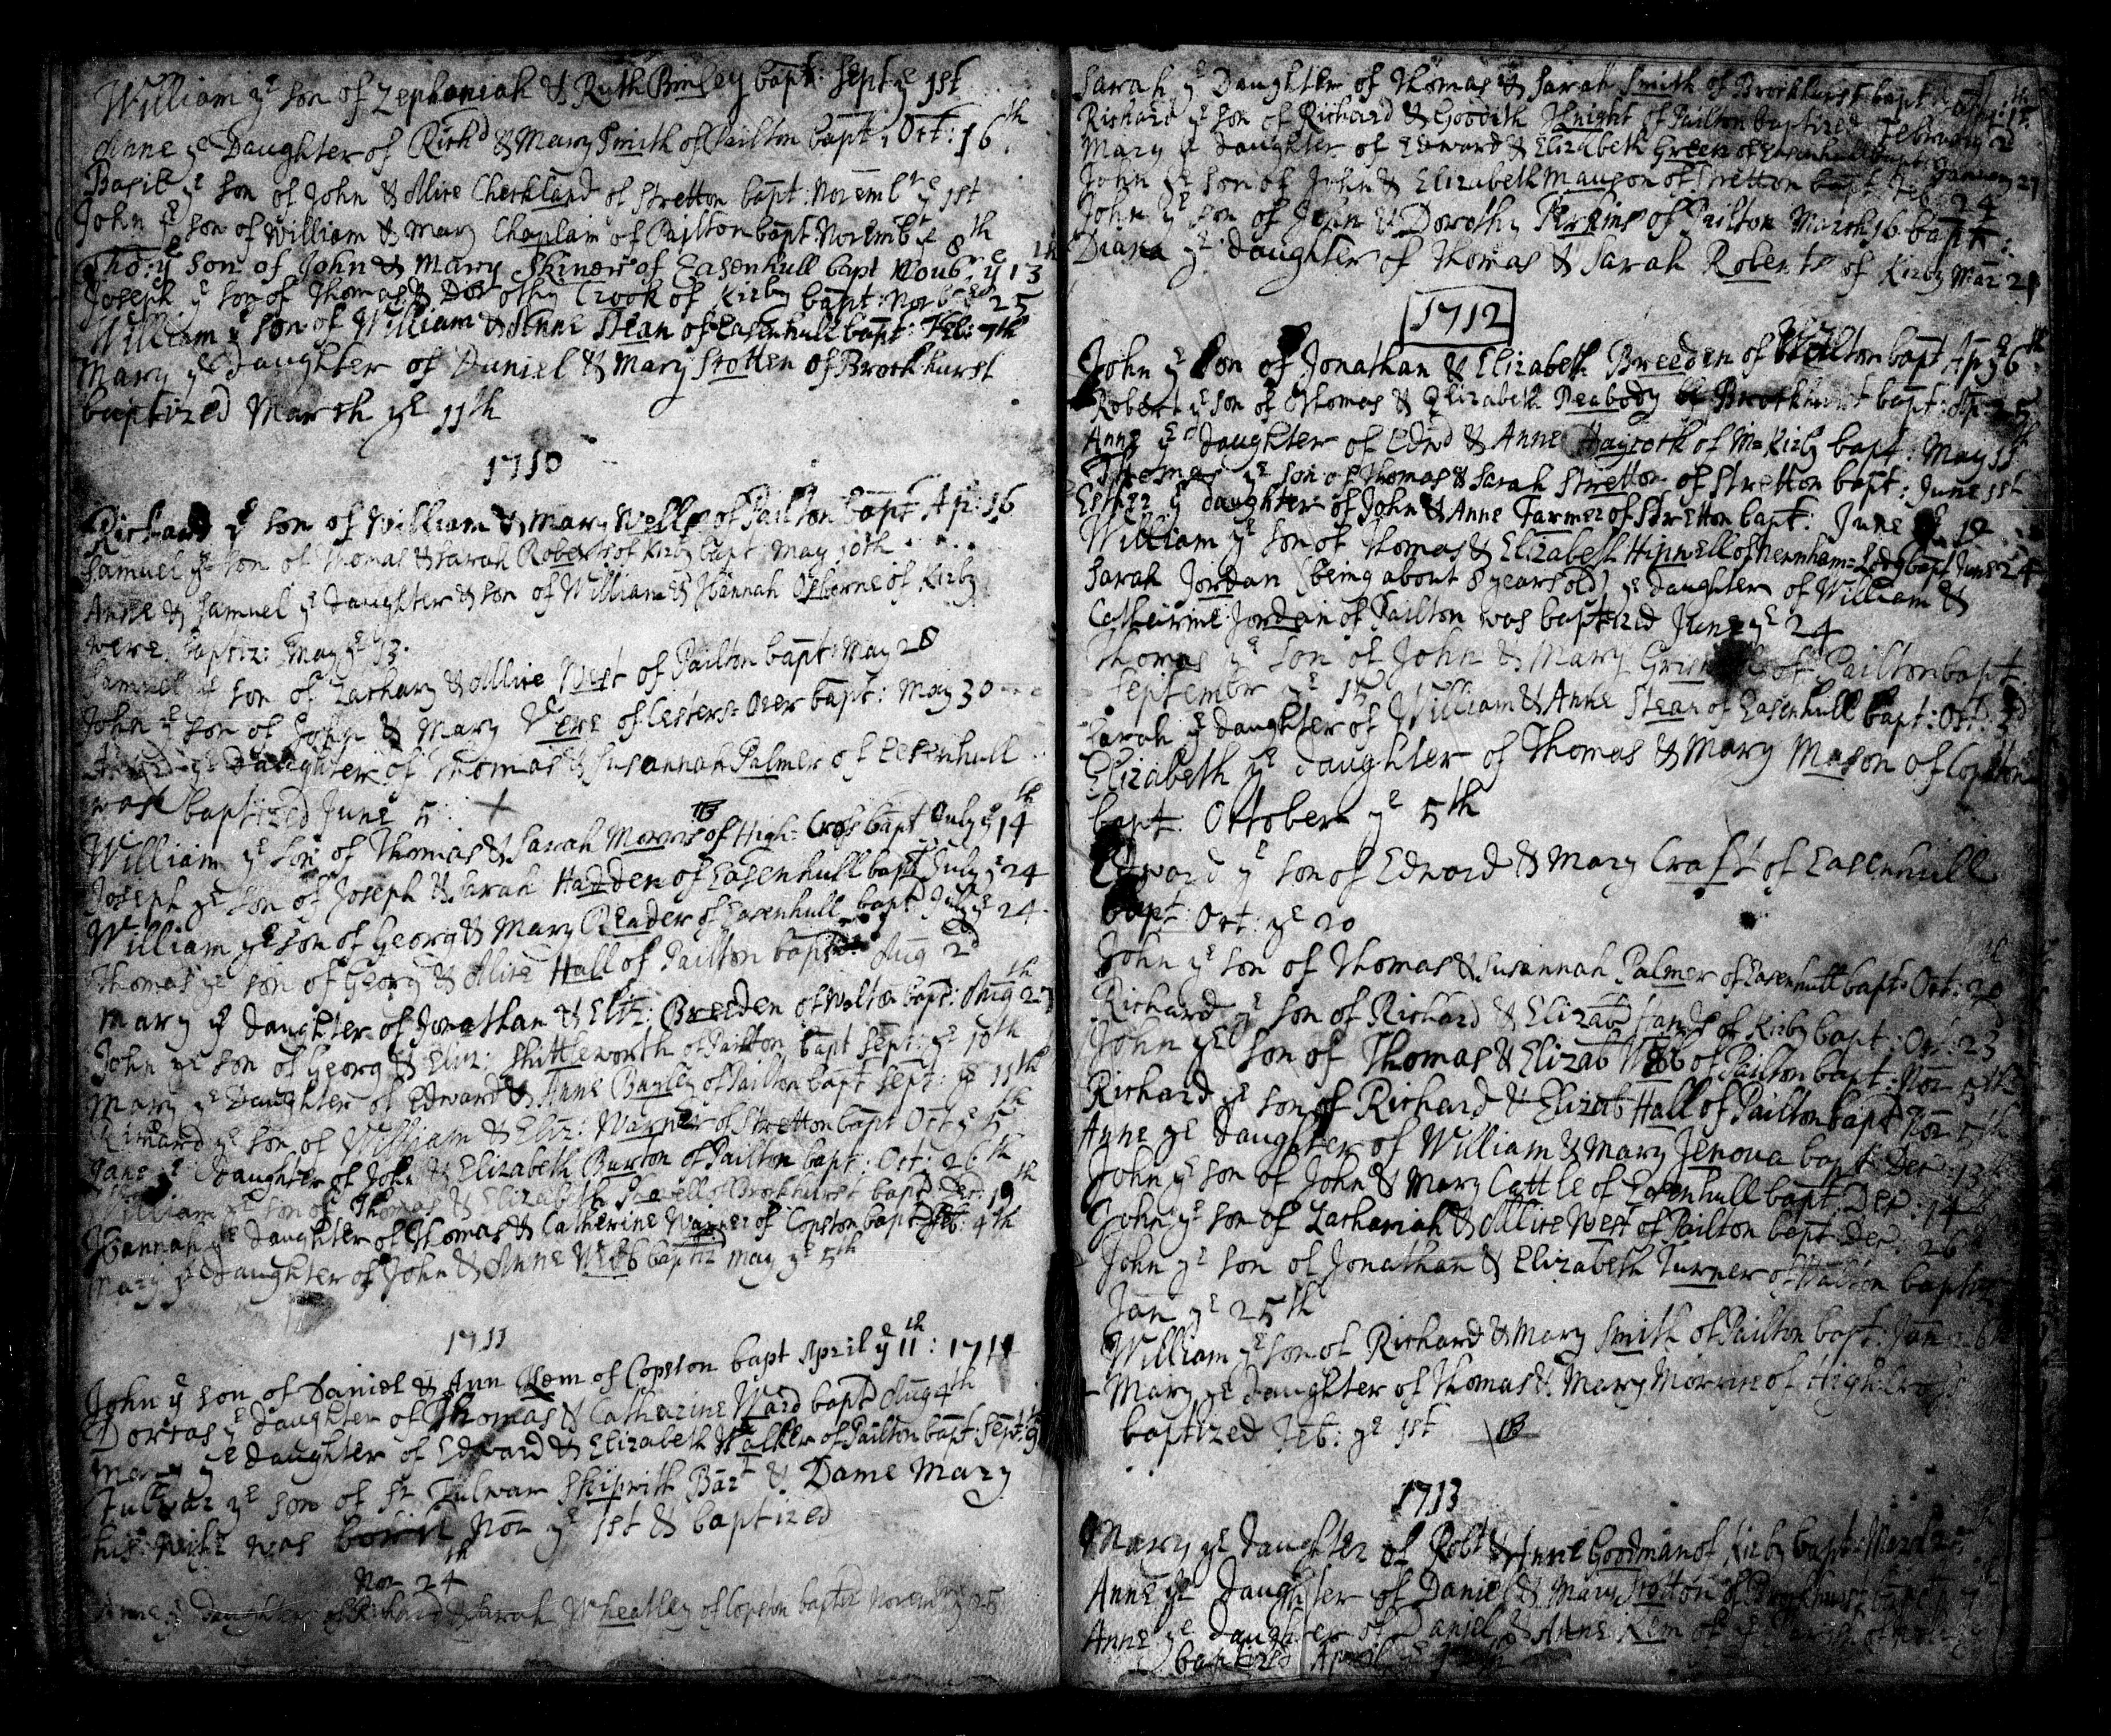 William ye son of Zephaniah & Ruth Binley bapt: Sept ye 1st
Anne ye Daughter of Richd & Mary Smith of Pailton bapt: Oct: 16th
Basil ye son of John & Alice Checkland of Stretton bapt: Novembr ye 1st
John ye son of William & Mary Chaplain of Pailton bapt: Novembr ye 8th
Tho: ye son of John & Mary Skiner of Easenhull bapt Noubr ye 13th
Joseph ye son of Thomas & Dorothy Crook of Kirby bapt: 25
William ye son of William & Anne Stean of Easenhull bapt: Feb: 7th
Mary ye Daughter of Daniel & Mary Stotten of Brockhurst
baptized March ye 11th
1710
Richard ye son of William & Mary Wells of Pailton bapt Ap: 16
Samuel ye son of Thomas & Sarah Roberts of Kirby bapt May 10th
Anne & Samuel ye Daughter & son of William & Hannah Osborne of Kirby
were baptiz: May ye 13.
Samuel ye son of Zachary & Alice West of Pailton bapt: May 28
John ye son of John & Mary Vere of Cesters=Over bapt: May 30
ye Daughter of Thomas & Susannah Palmer of Eesenhull
was baptized June 5:
William ye son of Thomas & Sarah Morris of High=Cross bapt July ye 14th
Joseph ye son of Joseph & Sarah Hadden of Easenhull bapt July ye 24
William ye son of Georg & Mary Reader of Easenhull bapt July ye 24
Thomas ye son of Georg & Alice Hall of Pailton bapt: Aug 2d
Mary ye Daughter of Jonathan & Eliz: Breeden of Wolton bapt: Aug 27th
John ye son of Georg & Eliz: Shittleworth of Pailton bapt Sept: ye 10th
Mary ye Daughter of Edward & Anne Bayley of Pailton bapt Sept: ye 11th
Richard ye son of William & Eliz: Warner of Stretton bapt Oct ye 5th
Jane ye Daughter of John & Elizabeth Burton of Pailton bapt: Oct: 26th
William ye son of Thomas & Elizabeth of Brockhurst bapt Dec: 19th
Hannah ye Daughter of Thomas & Catherine Warner of Copston bapt Feb: 4th
Mary ye Daughter of John & Anne Webb baptiz May ye 5th
1711
John ye son of Daniel & Ann Kem of Copston bapt April ye 11th: 1711
Dorcas ye Daughter of Thomas & Catherine Ward bapt Aug 4th
Mary ye Daughter of Edward & Elizabeth Walker of Pailton bapt: Sept: 9th
Fulwar ye son of Sr Fulwar Skipwith Bart & Dame Mary
his wife was born Nov ye 1st & baptized
Nov 24th
Anne ye Daughter of Richard & Sarah Wheatley of Copston baptiz Novem 25
Sarah ye Daughter of Thomas & Sarah Smith of Brockhurst bapt:
Richard ye son of Richard & Goodith Knight of Pailton baptized February 2
Mary ye Daughter of Edward & Elizabeth Green of Easenhull bapt: January 27
John ye son of John & Elizabeth Mauson of Stretton bapt Feb: 24
John ye son of John & Dorothy Perkins of Pailton March 16 bapt:
Diana ye Daughter of Thomas & Sarah Roberts of Kirby Mar 21
1712
John ye Son of Jonathan & Elizabeth Breeden of Wolton bapt Ap ye 6th
Robert ye son of Thomas & Elizabeth Peabody of Brockhurst bapt: Ap: 25
Anne ye daughter of Edwd & Anne Haycock of M=Kirby bapt: May 11th
Thomas ye son of Thomas & Sarah Stretton of Stretton bapt: June 1st
Esther ye daughter of John & Anne Farmer of Stretton bapt: June ye 12
William ye son of Thomas & Elizabeth Hipwell of Newnham=Lodg bapt June 24
Sarah Jordan (being about 8 years old) ye Daughter of William &
Catherine Jordain of Pailton was baptized June ye 24
Thomas ye son of John & Mary of Pailton bapt
Septembr ye 15
Sarah ye Daughter of William & Anne Stean of Easenhull bapt: Oct: 2d
Elizabeth ye daughter of Thomas & Mary Mason of Copston
bapt: October ye 5th
Edward ye son of Edward & Mary Craft of Easenhull
bapt: Oct: ye 20
John ye son of Thomas & Susannah Palmer of Easenhull bapt: Oct: 20
Richard ye son of Richard & Elizab Sands of Kirby bapt: Oct: 23
John ye son of Thomas & Elizab Webb of Pailton bapt: Nov 5th
Richard ye son of Richard & Elizab Hall of Pailton bapt Nov 5th
Anne ye Daughter of William & Mary Jenoua bapt: Dec: 13th
John ye son of John & Mary Cattle of Easenhull bapt: Dec: 14
John ye son of Zachariah & Alice West of Pailton bapt: Dec: 26
John ye son of Jonathan & Elizabeth Turner of Walton baptiz
Jan ye 25th
William ye son of Richard & Mary Smith of Pailton bapt: Jan 26
Mary ye daughter of Thomas & Mary Morrice of High Cross
baptized Feb: ye 1st
1713
Mary ye daughter of Robt & Anne Goodman of Kirby bapt: March
Anne ye Daughter of Daniel & Mary Stotton of Brockhurst bapt
Anne ye Daughter of Daniel & Anne Kem of ye Parish of
baptized April ye